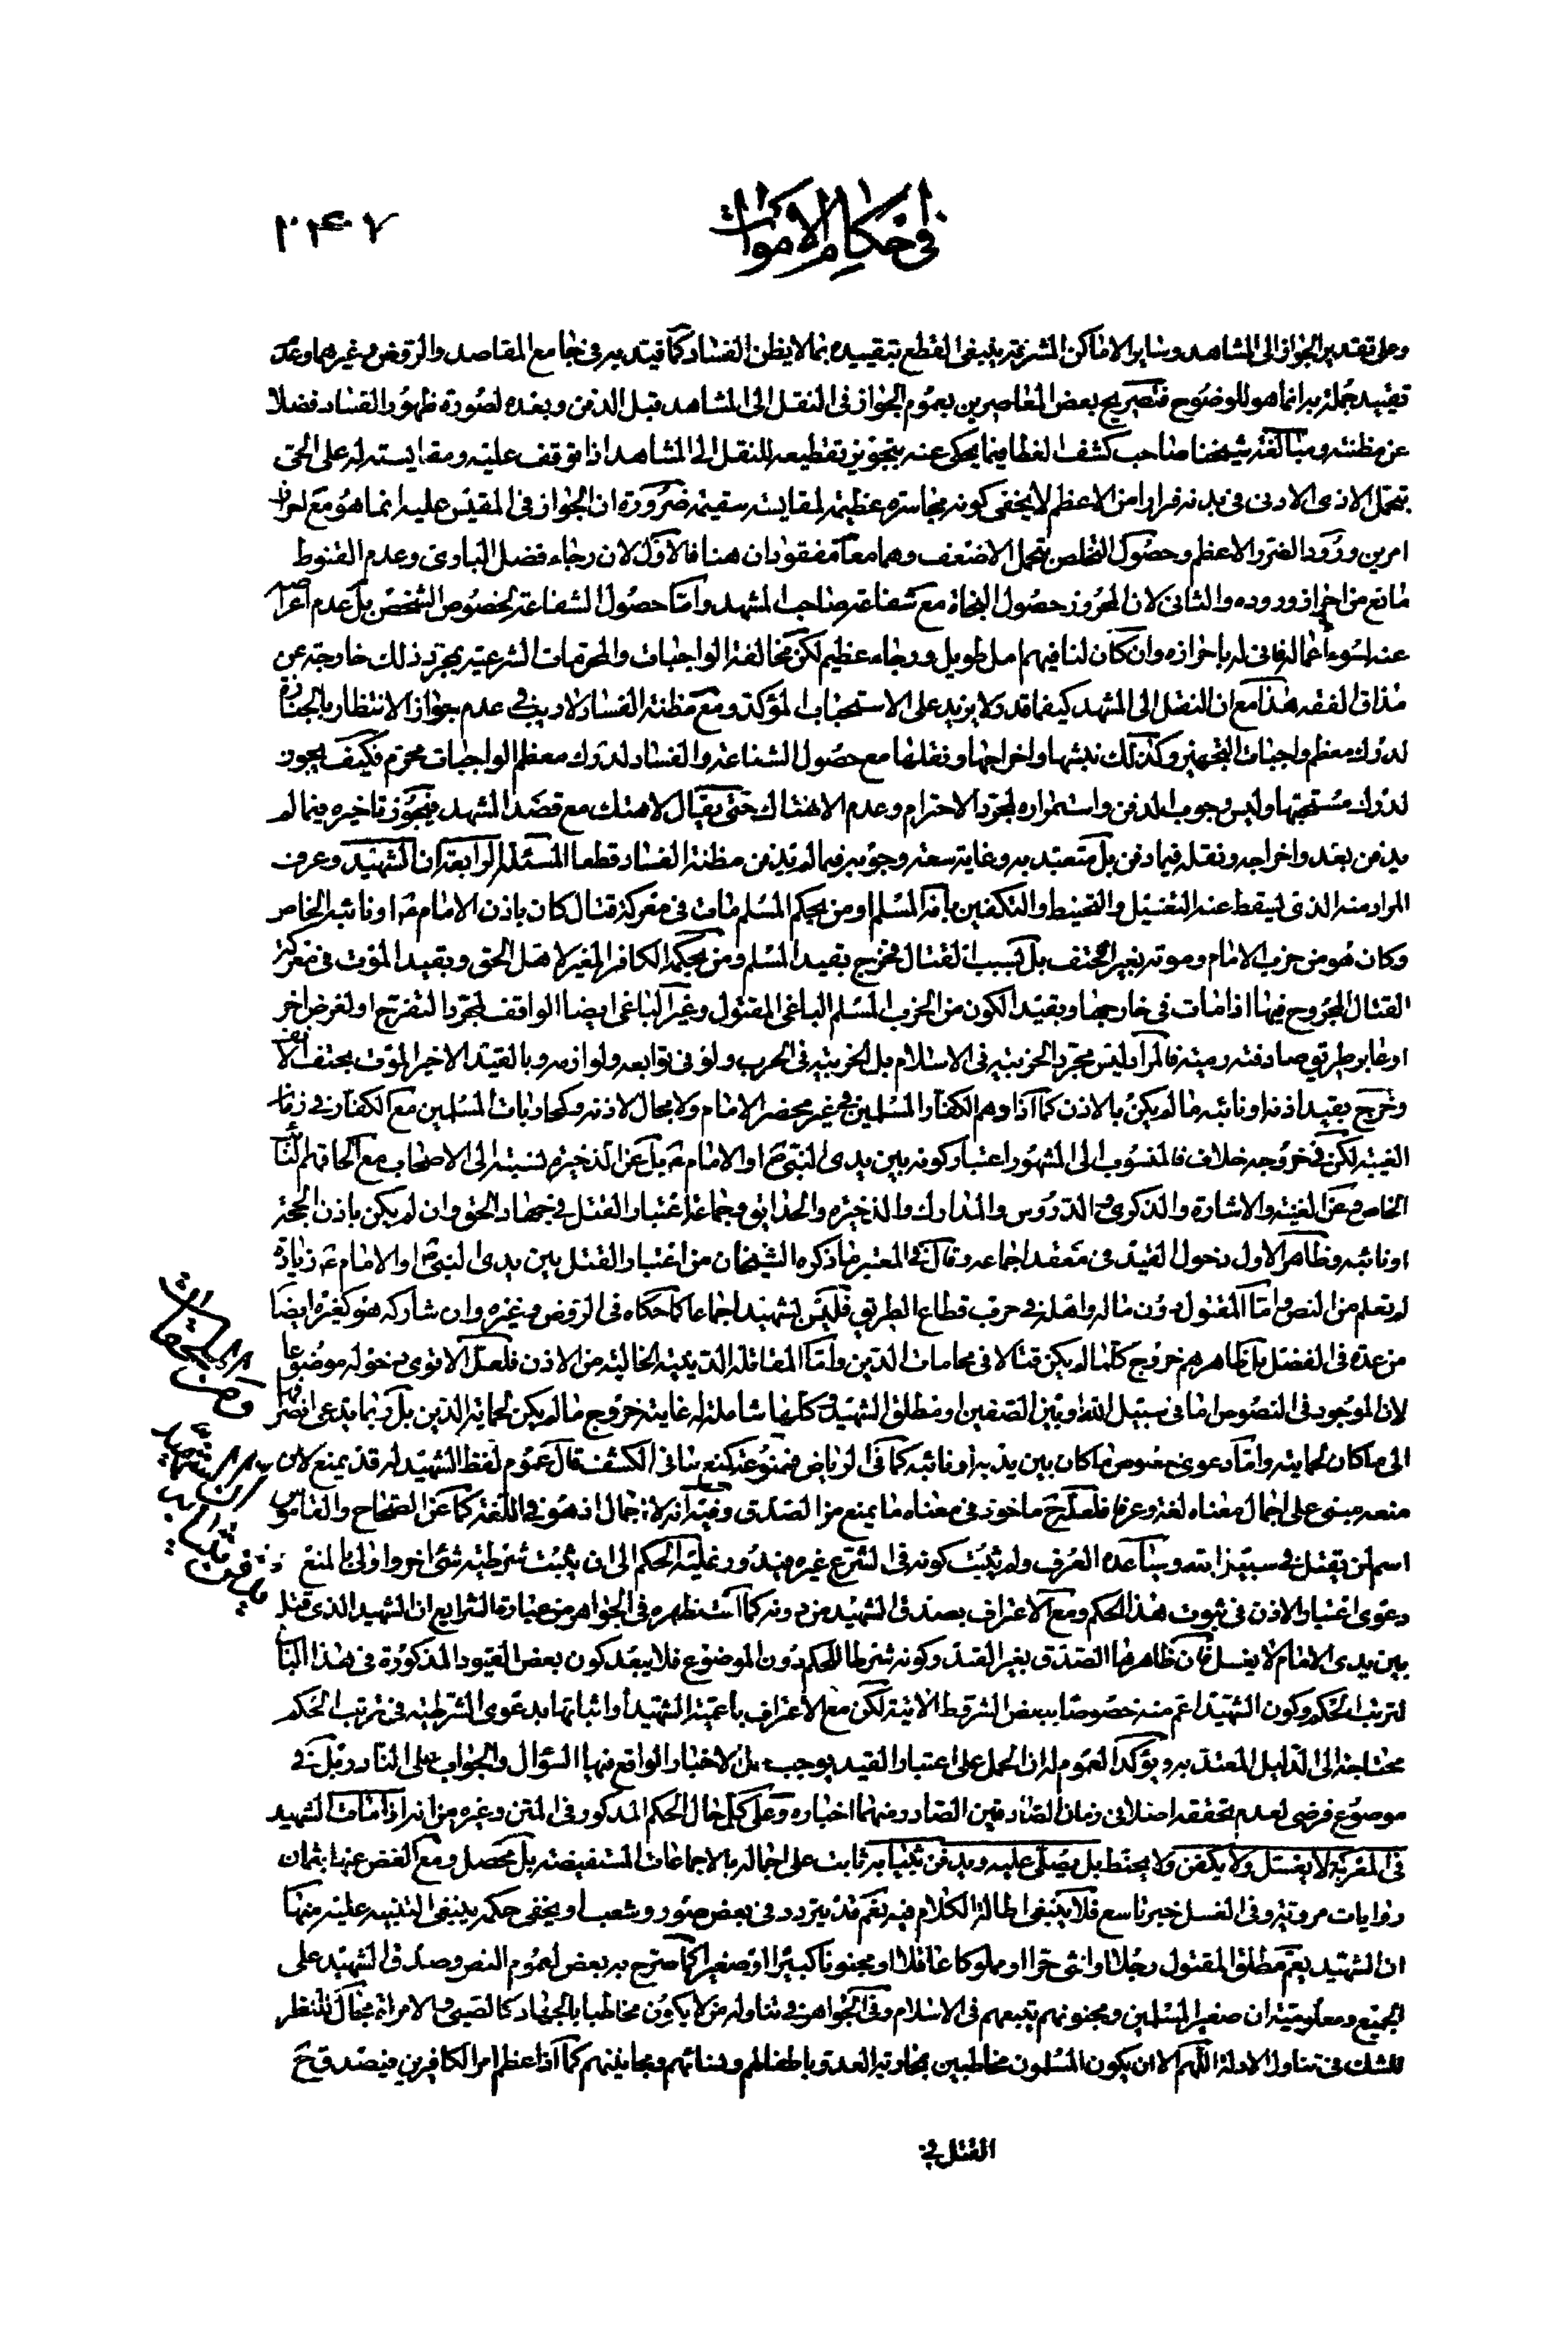 في احكام الاموات
٢٤٧
وعلى تقدير الجواز الى المشاهد وساير الاماكن المشرفة ينبغى القطع بتقييده بما لا يظن الفساد كما قيد به في جامع المقاصد والروض وغيرهما وعدم
تقييد جملة به انما هو للوضوح فتصريح بعض المعاصرين بعموم الجواز فى النقل الى المشاهد قبل الدفن وبعده لصورة ظهور الفساد فضلا
عن مظنته ومبالغة شيخنا صاحب كشف الغطا فيما يحكى عنه بتجويز تقطيعه للنقل الى المشاهد اذا توقف عليه ومقايسته له على الحى
بتحمل الاذى الادنى فى بدنه فرارا من الاعظم لا يخفى كونه مجاسرة عظيمة لمقايسة سقيمة ضرورة ان الجواز فى المقيس عليه انما هو مع احراز
امرين ورود الضرر الاعظم وحصول التخلص بتحمل الاضعف وهما معا مفقودان هنا فالاول لان رجاء فضل البارى وعدم القنوط
مانع من احراز وروده والثانى لان المحرز حصول النجاة مع شفاعة صاحب المشهد واما حصول الشفاعة لخصوص الشخص بل عدم اعراضه
عنه لسوء اعماله فانى له باحرازه وان كان لنا فيهم امل طويل ورجاء عظيم لكن مخالفة الواجبات والمحرمات الشرعية بمجرد ذلك خارجة عن
مذاق الفقه هذا مع ان النقل الى المشهد كيفما قدر لا يزيد على الاستحباب المؤكد ومع مظنة الفساد لا ريب فى عدم جواز الانتظار بالجنازة
لدرك معظم واجبات التجهيز وكذلك نبشها واخراجها ونقلها مع حصول الشناعة والفساد لدرك معظم الواجبات محرم فكيف يجوز
لدرك مستحبها وليس وجوب الدفن واستمراره لمجرد الاحترام وعدم الانهتاك حتى يقال لا هتك مع قصد المشهد فيجوز تاخيره فيما لم
يدفن بعد واخراجه ونقله فيما دفن بل متعبد به وغاية سعة وجوبه فيما لم يدفن مظنة الفساد قطعا المسئلة الرابعة ان الشهيد وعرف
المراد منه الذى يسقط عنه التغسيل والتحنيط والتكفين بانه المسلم او من بحكم المسلم مات فى معركة قتال كان باذن الامام ع او نائبه الخاص
وكان هو من حزب الامام وموته بغير الحتف بل بسبب القتال فخرج بقيد المسلم ومن بحكمه الكافر المغير لاهل الحق وبقيد الموت فى معركة
القتال المجروح فيها اذا مات فى خارجها وبقيد الكون من الحزب المسلم الباغى المقتول وغير الباغى ايضا الواقف لمجرد التفرج او لغرض اخر
او عابر طريق صادفته رمية فالمراد ليس مجرد الحزبية فى الاسلام بل الحزبية فى الحرب ولو فى توابعه ولوازمه وبالقيد الاخير الموت بحتف الانف
وخرج بقيد اذنه او نائبه ما لم يكن بالاذن كما اذا وهم الكفار المسلمين فى غير محضر الامام ولا مجال لاذنه وكمحاربات المسلمين مع الكفار فى زمان
الغيبة لكن فى خروجه خلاف فالمنسوب الى المشهور اعتبار كونه بين يدى النبى ص او الامام ع بل عن الذخيرة نسبته الى الاصحاب مع الحاقهم النائب
الخاص وعن الغنية والاشارة والذكرى والدروس والمدارك والذخيرة والحدايق وجماعة اعتبار القتل فى جهاد الحق وان لم يكن باذن الحجة
او نائبه وظاهر الاول دخول القيد فى معقد اجماعه وقال فى المعتبر ما ذكره الشيخان من اعتبار القتل بين يدى النبى ص او الامام ع زيادة
لم تعلم من النص واما المقتول دون ماله واهله فى حرب قطاع الطريق فليس بشهيد اجماعا كما حكاه فى الروض وغيره وان شاركه هو كغيره ايضا
من عدة فى الفضل بل ظاهرهم خروج كلما لم يكن قتالا فى محامات الدين واما المقاتلة الدينية الخالية من الاذن فلعل الاقوى دخوله موضوعا
لان الموجود فى النصوص اما فى سبيل الله او بين الصفين او مطلق الشهيد وكلها شاملة له غايته خروج ما لم يكن لحماية الدين بل ربما يدعى انصرافها
الى ما كان لحمايته واما دعوى خصوص ما كان بين يديه او نائبه كما فى الرياض فممنوعة كمنع ما فى الكشف قال عموم لفظ الشهيد له قد يمنع لان
منعه مبنى على اجمال معناه لغة وعرفا فلعل ح ماخوذ فى معناه ما يمنع من الصدق وفيه انه لا اجمال اذ هو فى اللغة كما عن الصحاح والقاموس
اسم لمن يقتل فى سبيل الله وساعده العرف ولم يثبت كونه فى الشرع غيره فيدور عليه الحكم الى ان يثبت شرطية شئ اخر واولى بالمنع
دعوى اعتبار الاذن فى ثبوت هذا الحكم ومع الاعتراف بصدق الشهيد من دونه كما استظهره فى الجواهر من عبارة الشرايع ان الشهيد الذى قتل
بين يدى الامام لا يغسل فان ظاهرها الصدق بغير القيد وكونه شرطا للحكم دون الموضوع فلا يبعد كون بعض القيود المذكورة فى هذا الباب
لترتب الحكم وكون الشهيد اعم منه خصوصا ببعض الشروط الاتية لكن مع الاعتراف باعمية الشهيد واثباتها بدعوى الشرطية فى ترتب الحكم
محتاجة الى الدليل المعتد به ويؤكد العموم له ان الحمل على اعتبار القيد يوجب حمل الاخبار الواقع فيها السؤال والجواب على النادر وبل فى
موضوع فرضى لعدم تحققه اصلا فى زمان الصادقين الصادر منهما اخباره وعلى كل حال الحكم المذكور فى المتن وغيره من انه اذا مات الشهيد
فى المعركة لا يغسل ولا يكفن ولا يحنط بل يصلى عليه ويدفن بثيابه ثابت على اجماله بالاجماعات المستفيضة بل محصل ومع الغض عنها بثمان
روايات مروية وفى الغسل خبر تاسع فلا ينبغى اطالة الكلام فيه نعم قد يتردد فى بعض صور وشعب او يخفى حكمه ينبغى التنبيه عليه منها
ان الشهيد يعم مطلق المقتول رجلا او انثى حرا او مملوكا عاقلا او مجنونا كبيرا او صغيرا كما صرح به بعض لعموم النص وصدق الشهيد على
الجميع ومعلومية ان صغير المسلمين ومجنونهم يتبعهم فى الاسلام وفى الجواهر فى تناوله من لا يكون مخاطبا بالجهاد كالصبى والامراة مجال للنظر
للشك فى تناول الادلة اللهم الا ان يكون المسلمون مخاطبين بمحاربة العدو باطفالهم ونسائهم ومجانينهم كما اذا عظم امر الكافرين فيصدق ح
القتل فى